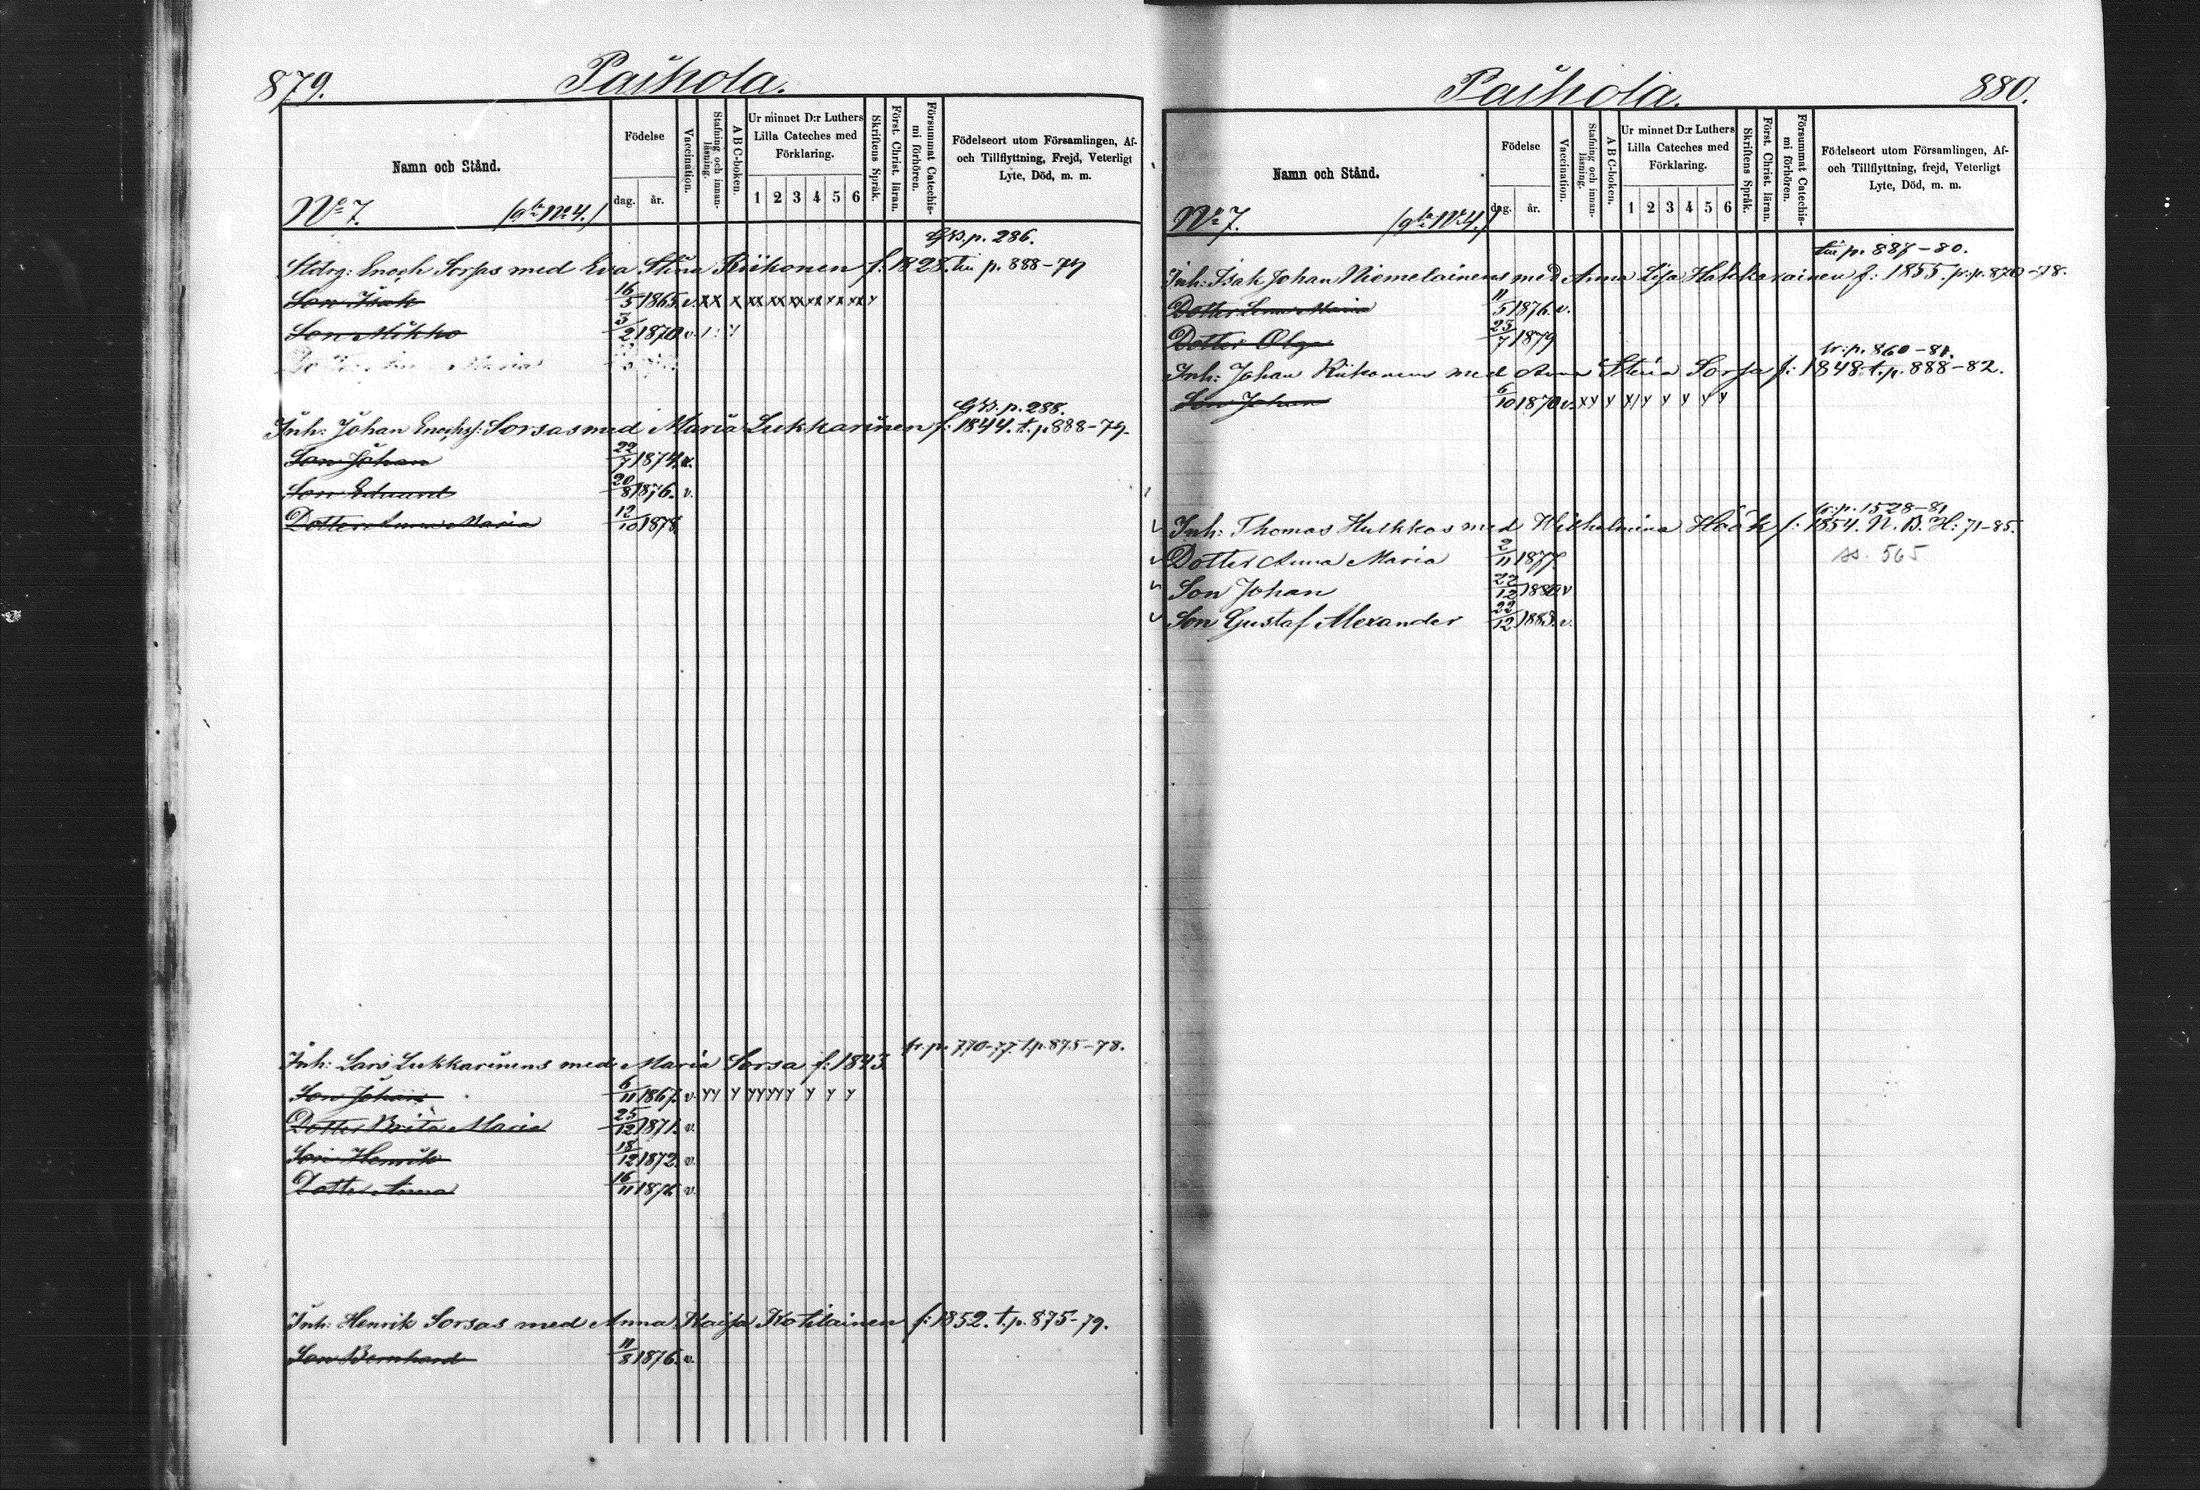 879.
Paihola.
Namn och Stånd.
Födelse
dag. år.
Vaccination.
Stafning och innanläsning.
ABC-boken.
Ur minnet D:r Luthers Lilla Cateches med Förklaring.
1 2 3 4 5 6
Skriftens Språk.
Först. Christ. läran.
Försummat Catechismi förhören.
Födelseort utom Församlingen, Af- och Tillflyttning, Frejd, Veterligt Lyte, Död, m. m.
No 7. /gla No 4./
GB. p. 286.
Stdrg: Enoch Sorsas med Eva Stina Riikonen f: 1828. tu p. 888-79
Son Isak 16/5 1865. v. xx x xx xx xx xx xx xx y
Son Mikko 3/2 1870 v.
Maria
GB. p. 288.
Inh: Johan Enochsf: Sorsas med Maria Lukkarinen f: 1844. t. p. 888-79.
Son Johan 22/7 1874. v.
Son Eduard 20/8 1876. v.
Dotter Anna Maria 12/10 1878.
fr. p. 770-77. t p. 875-78.
Inh: Lars Lukkarinens med Maria Sorsa f: 1843.
Son Johan 6/11 1867. v. yy y yy yy y y y y
Dotter Brita Maria 25/12 1871. v.
Son Henrik 18/12 1872. v.
Dotter Anna 16/11 1876. v.
Inh: Henrik Sorsas med Anna Kaisa Kotilainen f: 1852. t. p. 875-79.
Son Bernhard 11/8 1876. v.
Paihola.
880.
Namn och Stånd.
Födelse
dag. år.
Vaccination.
Stafning och innanläsning.
ABC-boken.
Ur minnet D:r Luthers Lilla Cateches med Förklaring.
1 2 3 4 5 6
Skriftens Språk.
Först. Christ. läran.
Försummat Catechismi förhören.
Födelseort utom Församlingen, Af- och Tillflyttning, frejd, Veterligt Lyte, Död, m. m.
No 7. /gla No 4./
tu p. 887-80.
Inh: Isak Johan Niemelainens med Anna Lisa Hakkarainen f: 1855. fr. p. 870-78.
Dotter Lena Maria 11/5 1876. v.
Dotter Olga 23/7 1879
fr: p. 860-81.
Inh: Johan Riikonens med Anna Stina Sorsa f: 1848 t. p. 888-82.
Son Johan 6/10 1870 v. xy y xy y y y y y
fr. p. 1528-81
Inh: Thomas Hulkkos med Wilhelmina Höök f: 1854. N. B. H: 71-85.
Dotter Anna Maria 2/11 1877
ss. 565
Son Johan 22/12 1880 v
Son Gustaf Alexander 22/12 1883. v.